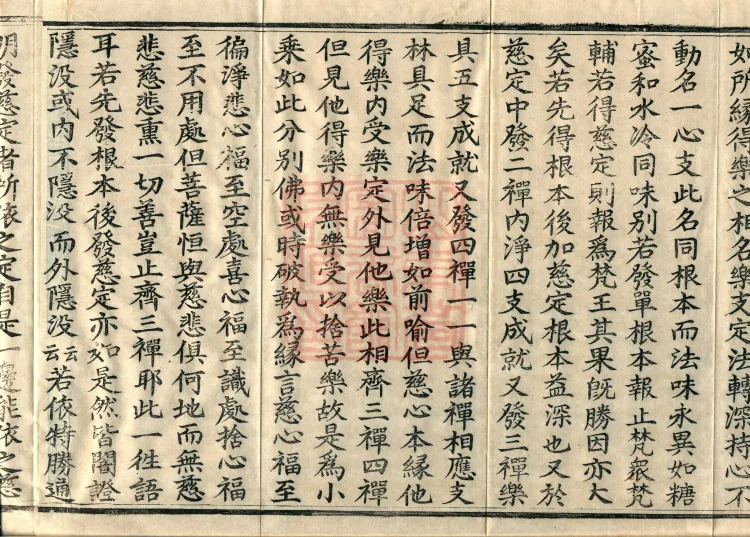 如所緣得樂之相名樂支定法轉深持心不
動名一心支此名同根本而法味永異如糖
蜜和水冷同味別若發單根本報止梵眾梵
輔若得慈定則報爲梵王其果旣勝因亦大
矣若先得根本後加慈定根本益深也又於
慈定中發二禪內淨四支成就又發三禪樂
具五支成就又發四禪一一與諸禪相應支
林具足而法味倍增如前喻但慈心本緣他
得樂內受樂定外見他樂此相齊三禪四禪
但見他得樂內無樂受以捨苦樂故是爲小
乘如此分別佛或時破執爲緣言慈心福至
徧淨悲心福至空處喜心福至識處捨心福
至不用處但菩薩恒與慈悲俱何地而無慈
悲慈悲熏一切善豈止齊三禪耶此一往語
耳若先發根本後發慈定亦如是然皆闇證
隱沒或內不隱沒而外隱沒云云若依特勝通
明發慈定者所依之定自是一邊能依之慈